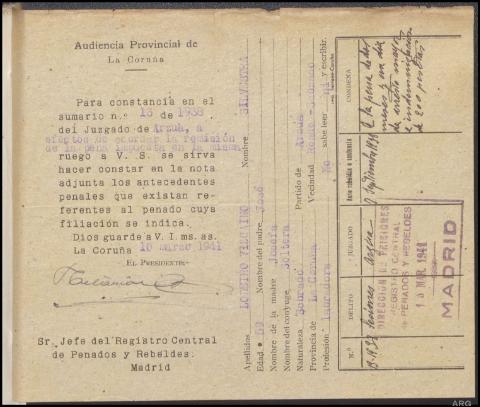 Audiencia Provincial de
La Coruña
Para constancia en el
sumario n.º 18 de 1938
del Juzgado de Arzua, a
efectos de acordar la remisión
de la pena impuesta en la misma
ruego a V. S. se sirva
hacer constar en la nota
adjunta los antecedentes
penales que existan re-
ferentes al penado cuya
filiación se indica.
Dios guarde a V. I. ms. as.
La Coruña 10 marzo 1941
EL PRESIDENTE
Sr. Jefe del Registro Central
de Penados y Rebeldes.
Madrid
Apellidos LOUREIRO Nombre SILVESTRA
Edad 59 Nombre del padre José
Nombre de la madre Josefa
Nombre del conyuge Soltera
Naturaleza Partido de Arzua
Provincia de La Coruña Vecindad
Profesión labradora sabe leer No escribir
N.º DELITO JUZGADO CONDENA
18-1938 Lesiones Arzúa Septiembre 1938 a la pena de dos
meses y un día
de arresto mayor
e indemnización
de 200 pesetas
DIRECCIÓN G. PRISIONES
REGISTRO CENTRAL
DE PENADOS Y REBELDES
MAR. 1941
MADRID
ARG